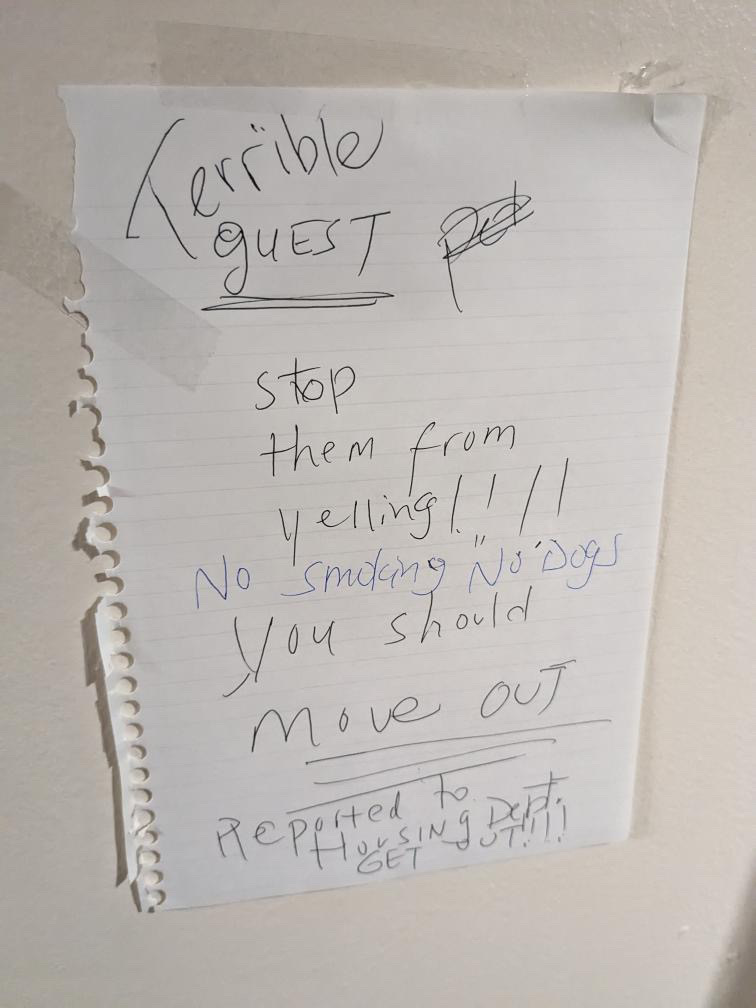 Terrible
GUEST
stop
them from
yelling!!!!
No smoking "No" Dogs
You should
Move OUT
Reported to
Housing Dept.
GET OUT!!!!